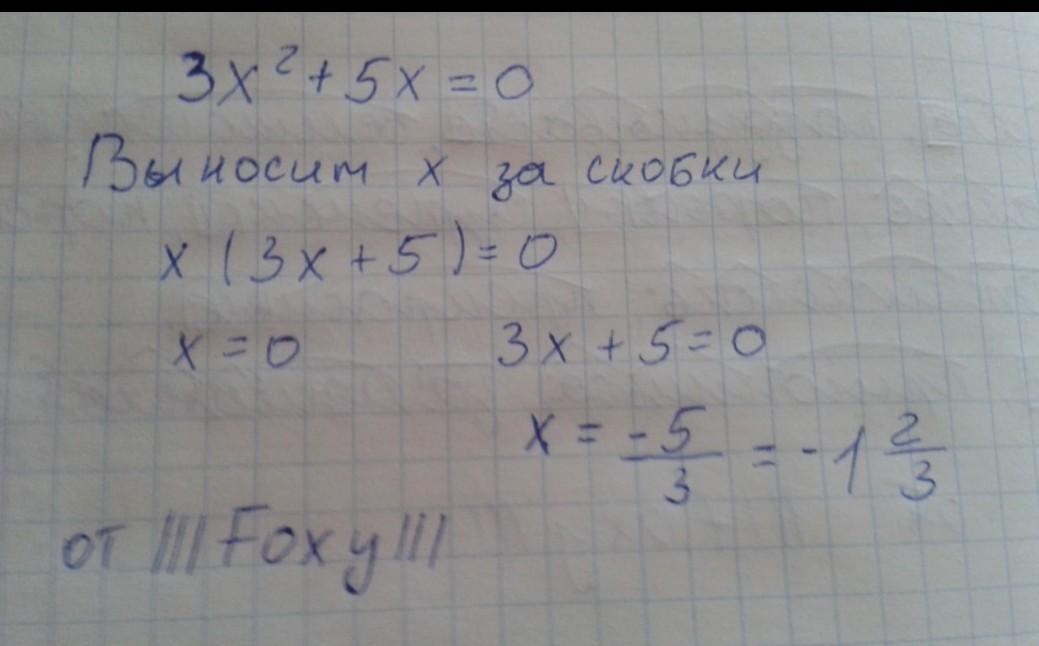 3x² + 5x = 0
Выносим x за скобки
x (3x + 5) = 0
x = 0 3x + 5 = 0
x = -5/3 = -1 2/3
от |||Foxy|||